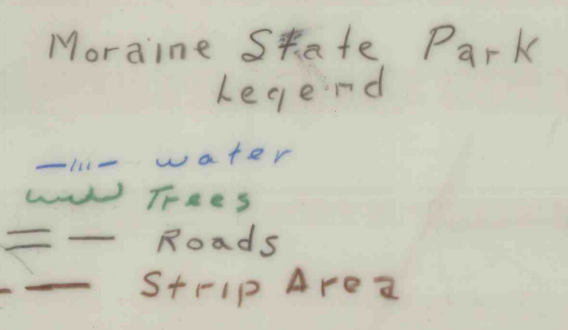 Moraine State Park
Legend
water
Trees
Roads
Strip Area